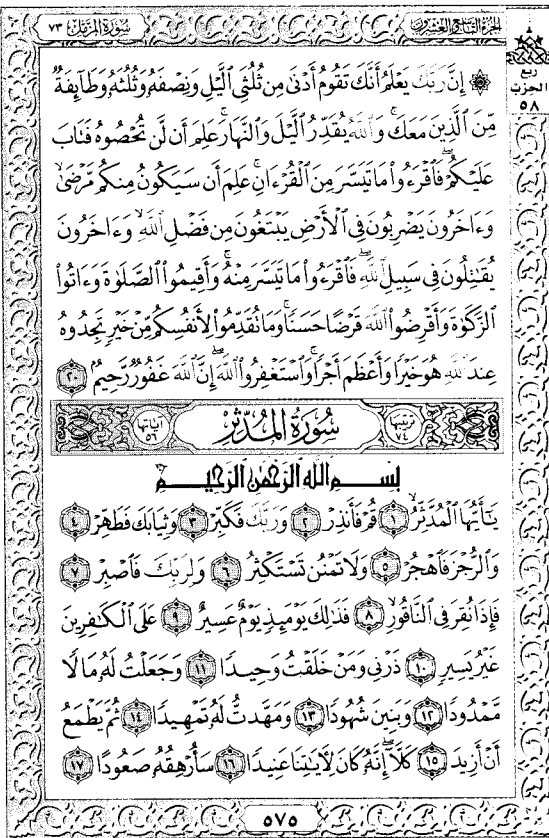 الجزء التاسع والعشرون
سورة المزمل ٧٣
ربع
الحزب
٥٨
۞ إِنَّ رَبَّكَ يَعْلَمُ أَنَّكَ تَقُومُ أَدْنَىٰ مِن ثُلُثَيِ ٱلَّيْلِ وَنِصْفَهُۥ وَثُلُثَهُۥ وَطَآئِفَةٌ
مِّنَ ٱلَّذِينَ مَعَكَ ۚ وَٱللَّهُ يُقَدِّرُ ٱلَّيْلَ وَٱلنَّهَارَ ۚ عَلِمَ أَن لَّن تُحْصُوهُ فَتَابَ
عَلَيْكُمْ ۖ فَٱقْرَءُوا۟ مَا تَيَسَّرَ مِنَ ٱلْقُرْءَانِ ۚ عَلِمَ أَن سَيَكُونُ مِنكُم مَّرْضَىٰ ۙ
وَءَاخَرُونَ يَضْرِبُونَ فِى ٱلْأَرْضِ يَبْتَغُونَ مِن فَضْلِ ٱللَّهِ ۙ وَءَاخَرُونَ
يُقَـٰتِلُونَ فِى سَبِيلِ ٱللَّهِ ۖ فَٱقْرَءُوا۟ مَا تَيَسَّرَ مِنْهُ ۚ وَأَقِيمُوا۟ ٱلصَّلَوٰةَ وَءَاتُوا۟
ٱلزَّكَوٰةَ وَأَقْرِضُوا۟ ٱللَّهَ قَرْضًا حَسَنًا ۚ وَمَا تُقَدِّمُوا۟ لِأَنفُسِكُم مِّنْ خَيْرٍ تَجِدُوهُ
عِندَ ٱللَّهِ هُوَ خَيْرًا وَأَعْظَمَ أَجْرًا ۚ وَٱسْتَغْفِرُوا۟ ٱللَّهَ ۖ إِنَّ ٱللَّهَ غَفُورٌ رَّحِيمٌۢ ٢٠
ترتيبها ٧٤ سُورَةُ المُدَّثِّر آياتها ٥٦
بسم الله الرحمن الرحيم
يَـٰٓأَيُّهَا ٱلْمُدَّثِّرُ ١ قُمْ فَأَنذِرْ ٢ وَرَبَّكَ فَكَبِّرْ ٣ وَثِيَابَكَ فَطَهِّرْ ٤
وَٱلرُّجْزَ فَٱهْجُرْ ٥ وَلَا تَمْنُن تَسْتَكْثِرُ ٦ وَلِرَبِّكَ فَٱصْبِرْ ٧
فَإِذَا نُقِرَ فِى ٱلنَّاقُورِ ٨ فَذَٰلِكَ يَوْمَئِذٍ يَوْمٌ عَسِيرٌ ٩ عَلَى ٱلْكَـٰفِرِينَ
غَيْرُ يَسِيرٍ ١٠ ذَرْنِى وَمَنْ خَلَقْتُ وَحِيدًا ١١ وَجَعَلْتُ لَهُۥ مَالًا
مَّمْدُودًا ١٢ وَبَنِينَ شُهُودًا ١٣ وَمَهَّدتُّ لَهُۥ تَمْهِيدًا ١٤ ثُمَّ يَطْمَعُ
أَنْ أَزِيدَ ١٥ كَلَّآ ۖ إِنَّهُۥ كَانَ لِـَٔايَـٰتِنَا عَنِيدًا ١٦ سَأُرْهِقُهُۥ صَعُودًا ١٧
٥٧٥